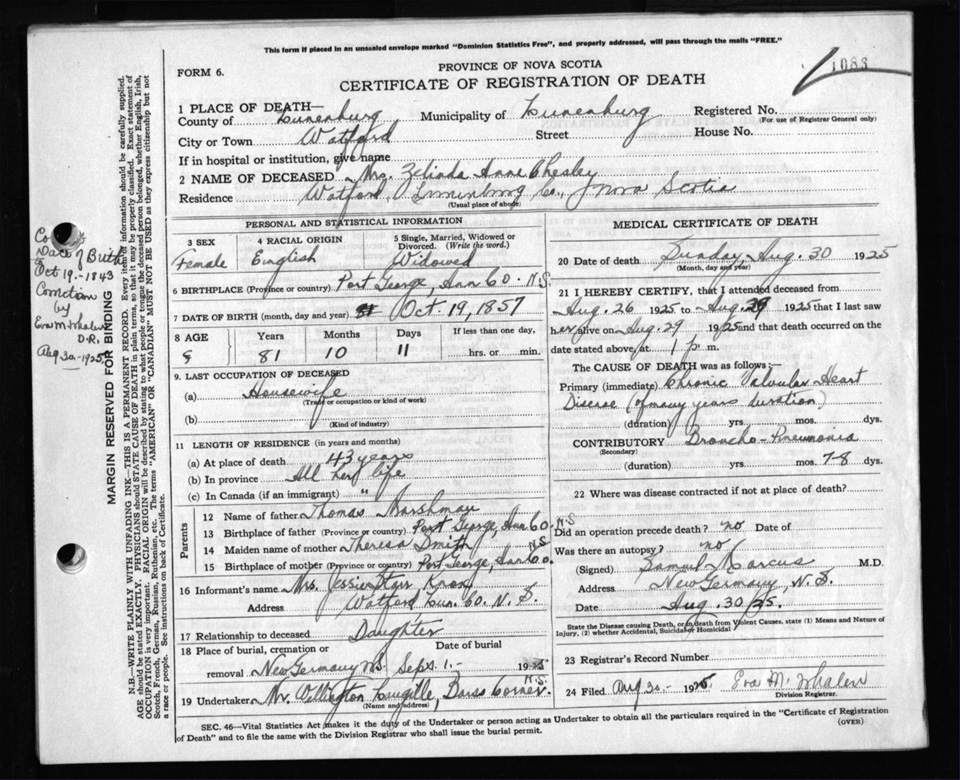 This form if placed in an unsealed envelope marked "Dominion Statistics Free", and properly addressed, will pass through the mails "FREE."
1083
FORM 6.
PROVINCE OF NOVA SCOTIA
CERTIFICATE OF REGISTRATION OF DEATH
1 PLACE OF DEATH—
County of Lunenburg Municipality of Lunenburg Registered No.
(For use of Registrar General only)
City or Town Watford Street House No.
If in hospital or institution, give name
2 NAME OF DECEASED Mrs. Zelinda Anna Chesley
Residence Watford, Lunenburg Co., Nova Scotia
(Usual place of abode)
PERSONAL AND STATISTICAL INFORMATION
3 SEX 4 RACIAL ORIGIN 5 Single, Married, Widowed or
Divorced. (Write the word.)
Female English Widowed
6 BIRTHPLACE (Province or country) Port George, Ann Co. N.S.
7 DATE OF BIRTH (month, day and year) Oct. 19, 1857
8 AGE Years Months Days If less than one day,
81 10 11 hrs. or min.
9. LAST OCCUPATION OF DECEASED
(a) Housewife
(Trade or occupation or kind of work)
(b)
(Kind of industry)
11 LENGTH OF RESIDENCE (in years and months)
(a) At place of death 43 years
(b) In province All her life
(c) In Canada (if an immigrant) "
Parents
12 Name of father Thomas Marshman
13 Birthplace of father (Province or country) Port George, Ann Co. N.S.
14 Maiden name of mother Theresa Smith
15 Birthplace of mother (Province or country) Port George, Ann Co. N.S.
16 Informant's name Mrs. Jessie Starr Knox
Address Watford Lun. Co. N. S.
17 Relationship to deceased Daughter
18 Place of burial, cremation or Date of burial
removal New Germany N.S. Sept. 1.- 1925
19 Undertaker Mr. Wellington Caugille, Barss Corner N.S.
(Name and address)
MEDICAL CERTIFICATE OF DEATH
20 Date of death Sunday, Aug. 30 1925
(Month, day and year)
21 I HEREBY CERTIFY, that I attended deceased from
Aug. 26 1925 to Aug. 29 1925 that I last saw
her alive on Aug. 29 1925 and that death occurred on the
date stated above, at 1 p m.
The CAUSE OF DEATH was as follows:—
Primary (immediate) Chronic Valvular Heart
Disease (of many years duration)
(duration) yrs. mos. dys.
CONTRIBUTORY Broncho-Pneumonia
(Secondary)
(duration) yrs. mos. 7-8 dys.
22 Where was disease contracted if not at place of death?
Did an operation precede death? no Date of
Was there an autopsy? no
(Signed) Samuel Marcus M.D.
Address New Germany, N. S.
Date Aug. 30/25.
State the Disease causing Death, or in death from Violent Causes, state (1) Means and Nature of
Injury, (2) whether Accidental, Suicidal or Homicidal
23 Registrar's Record Number
24 Filed Aug 30- 1925 Eva M. Whalen
Division Registrar.
SEC. 46—Vital Statistics Act makes it the duty of the Undertaker or person acting as Undertaker to obtain all the particulars required in the "Certificate of Registration
of Death" and to file the same with the Division Registrar who shall issue the burial permit.
(OVER)
Date of Birth
Oct 19.-1843
Correction
by
Eva M. Whalen
D.R.
Aug 30-1925
MARGIN RESERVED FOR BINDING
N.B.—WRITE PLAINLY WITH UNFADING INK—THIS IS A PERMANENT RECORD. Every item of information should be carefully supplied.
AGE should be stated EXACTLY. PHYSICIANS should STATE CAUSE OF DEATH in plain terms, so that it may be properly classified. Exact statement of
OCCUPATION is very important. RACIAL ORIGIN will be described by stating to what people or tongue the deceased person belonged, whether English, Irish,
Scotch, French, German, Russian, Ruthenian, etc. The terms "AMERICAN" or "CANADIAN" MUST NOT BE USED as they express citizenship but not
a race or people. See instructions on back of Certificate.